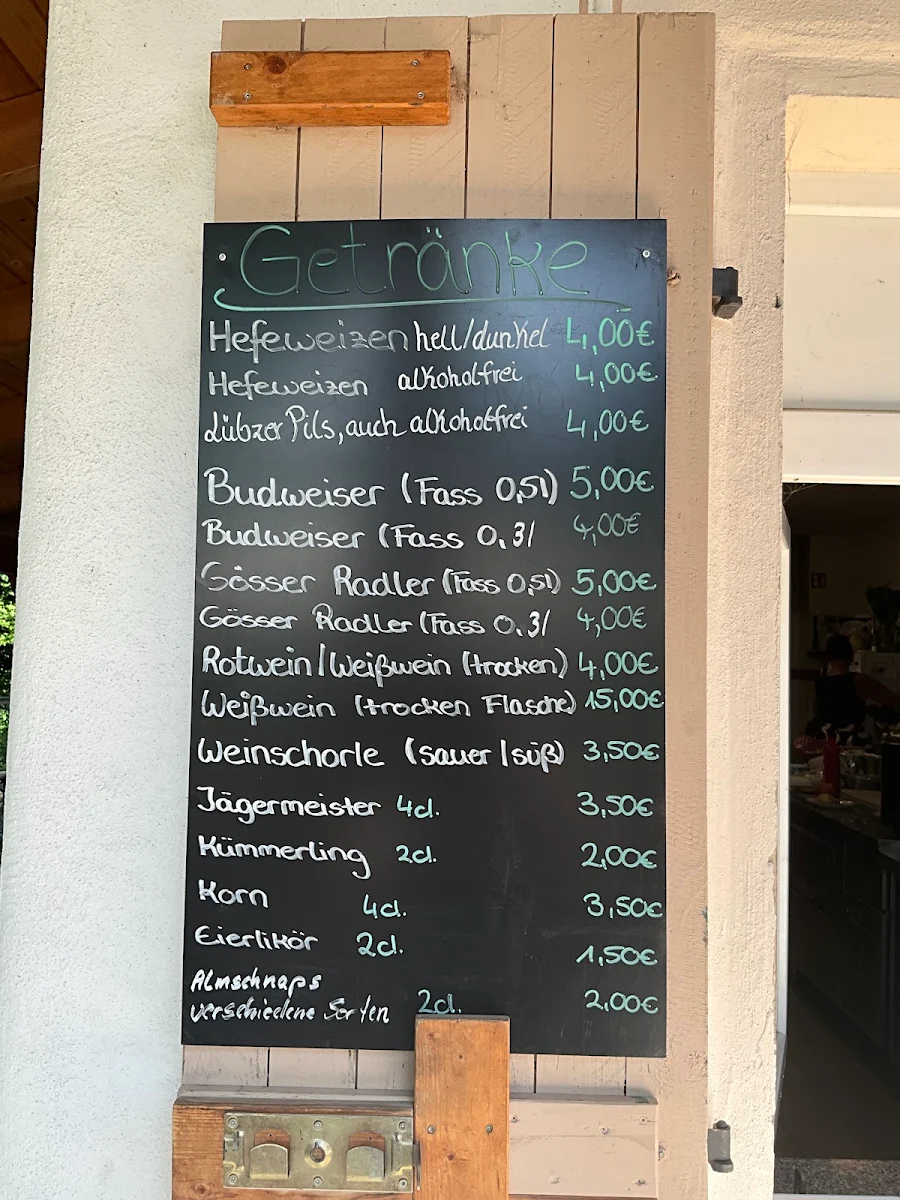 Getränke
Hefeweizen hell/dunkel 4,00€
Hefeweizen alkoholfrei 4,00€
Lübzer Pils, auch alkoholfrei 4,00€
Budweiser (Fass 0,5l) 5,00€
Budweiser (Fass 0,3l 4,00€
Gösser Radler (Fass 0,5l) 5,00€
Gösser Radler (Fass 0,3l 4,00€
Rotwein/Weißwein (trocken) 4,00€
Weißwein (trocken Flasche) 15,00€
Weinschorle (sauer/süß) 3,50€
Jägermeister 4cl. 3,50€
Kümmerling 2cl. 2,00€
Korn 4cl. 3,50€
Eierlikör 2cl. 1,50€
Almschnaps
verschiedene Sorten 2cl. 2,00€